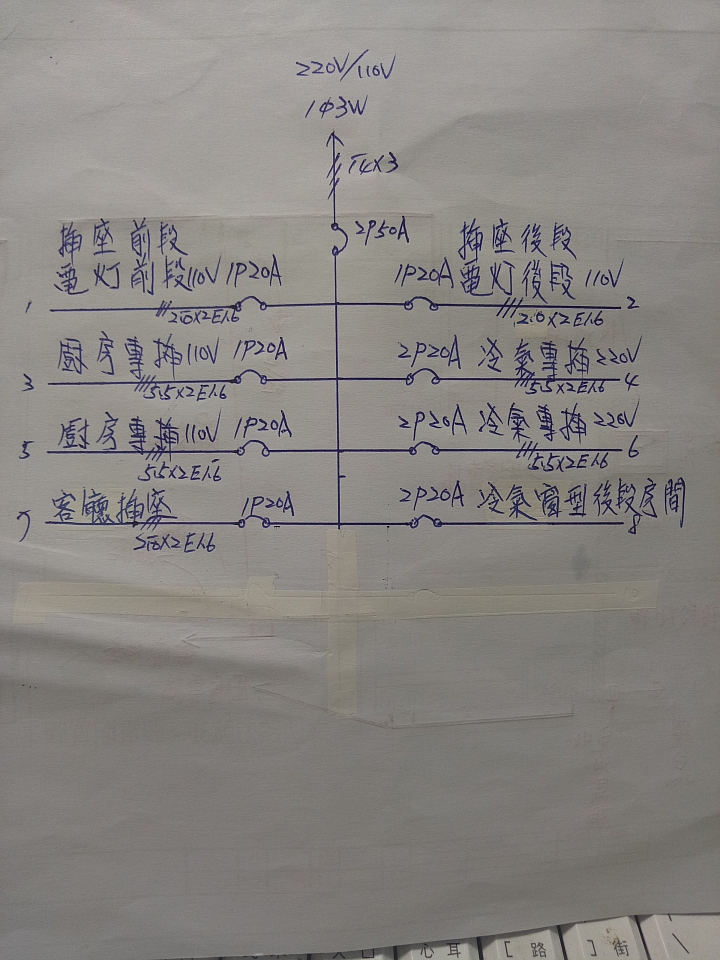 220V/110V
1φ3W
14×3
2P50A
插座前段
電灯前段110V 1P20A
1
2.0×2E1.6
插座後段
1P20A 電灯後段 110V
2
2.0×2E1.6
廚房專插110V 1P20A
3
5.5×2E1.6
2P20A 冷氣專插220V
4
5.5×2E1.6
廚房專插110V 1P20A
5
5.5×2E1.6
2P20A 冷氣專插220V
6
5.5×2E1.6
客廳插座 1P20A
7
2.0×2E1.6
2P20A 冷氣窗型後段房間
8
心 耳
[ 路
] 街
\